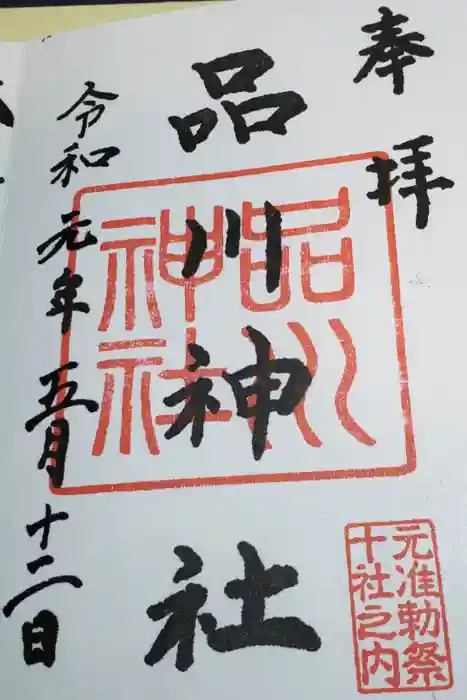 奉拝
品川神社
令和元年五月十二日
品川
神社
元准勅祭
十社之内